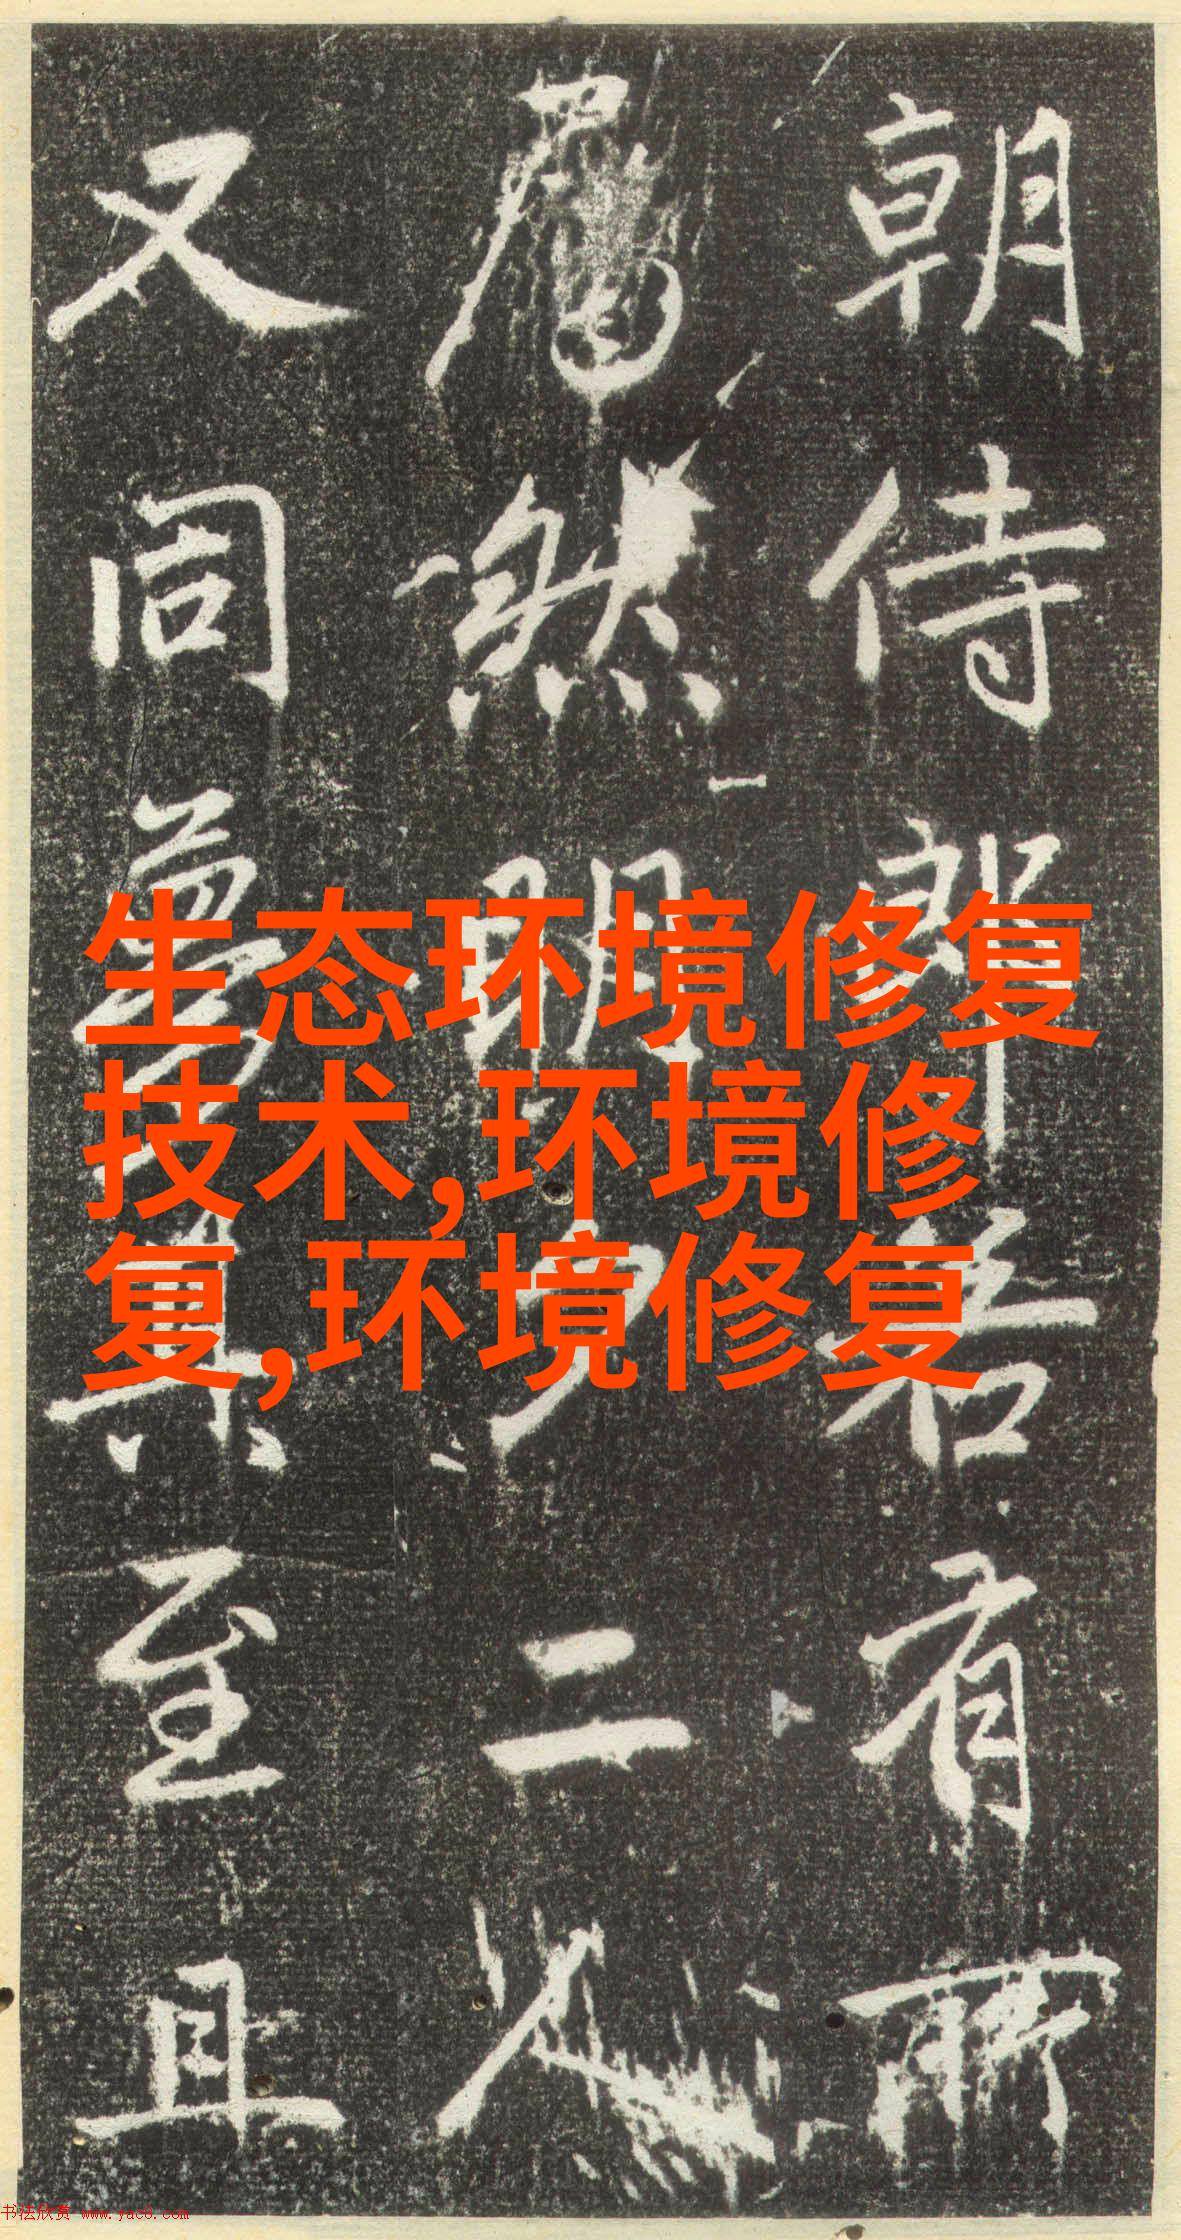 朝侍郎若有所
然明夕二人
又同夢其至且
生态环境修复
技术,环境修
复,环境修复
书法欣赏 www.yac8.com